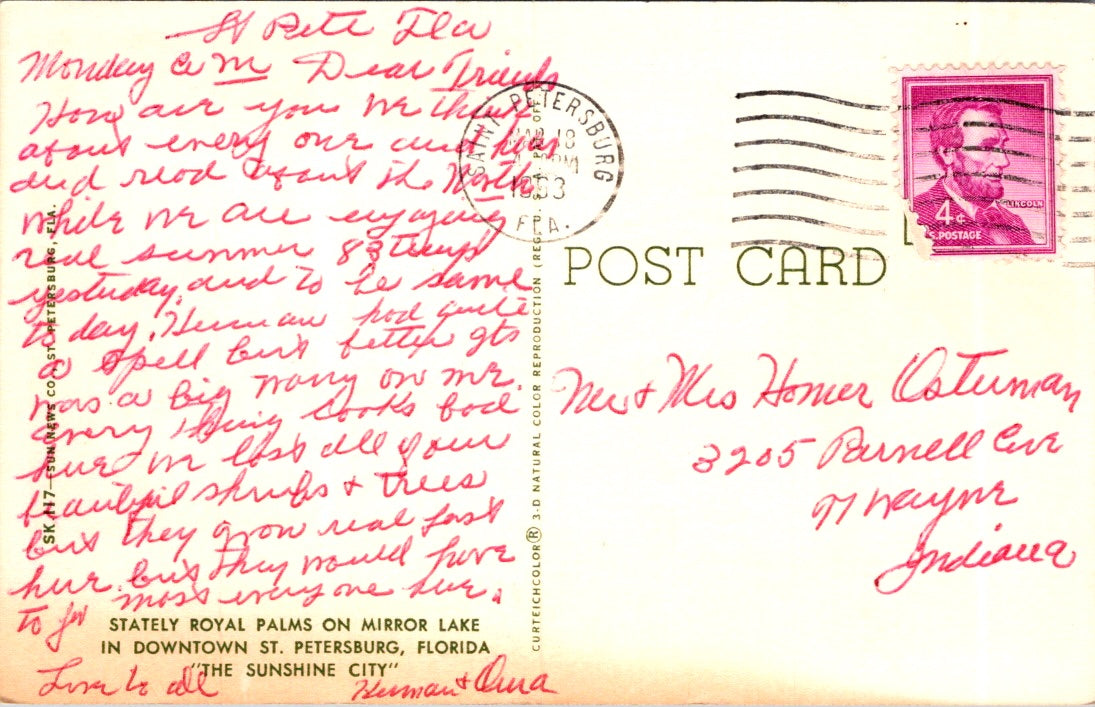 St Pete Fla
Monday a m Dear Friends
How are you we think
about every one and hear
and read about the North
while we are enjoying
real summer 83 temp
yesterday, and to be same
to day. Herman had quite
a spell but better gts
was a big worry on me.
every thing looks bad
here we lost all your
beautiful shrubs & trees
but they grow real fast
here. but they would have
to for most everyone here.
Love to all
Herman &
STATELY ROYAL PALMS ON MIRROR LAKE
IN DOWNTOWN ST. PETERSBURG, FLORIDA
"THE SUNSHINE CITY"
SK 117—SUN NEWS CO., ST. PETERSBURG, FLA.
CURTEICHCOLOR® 3-D NATURAL COLOR REPRODUCTION (REG. U.S. PAT. OFF.)
SAINT PETERSBURG
MAR 18
PM
1963
FLA.
LINCOLN
4¢
U.S. POSTAGE
POST CARD
Mr & Mrs Homer Osterman
3205 Burnell Ave
Ft Wayne
Indiana